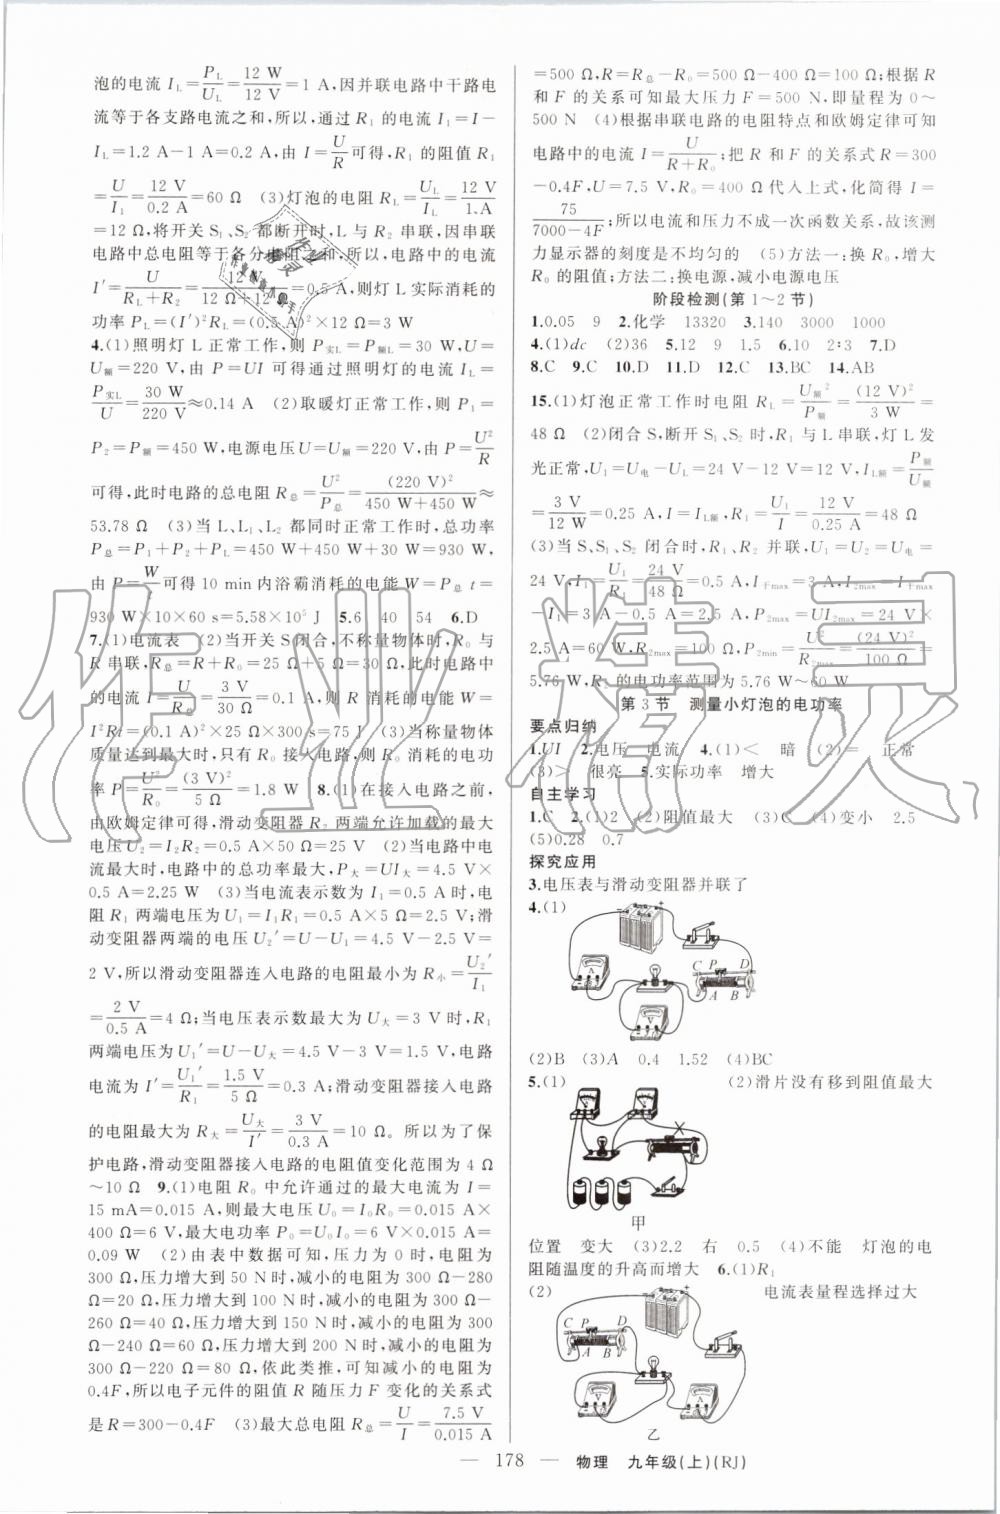 泡的电流 I_L=P_L/U_L=12 W/12 V=1 A,因并联电路中干路电
流等于各支路电流之和,所以,通过 R₁ 的电流 I₁=I-
I_L=1.2 A-1 A=0.2 A,由 I=U/R可得,R₁ 的阻值 R₁
=U/I₁=12 V/0.2 A=60 Ω (3)灯泡的电阻 R_L=U_L/I_L=12 V/1.A
=12 Ω,将开关 S₁、S₂ 都断开时,L 与 R₂ 串联,因串联
电路中总电阻等于各分电阻之和,所以,电路中的电流
I′=U/(R_L+R₂)=12 V/(12 Ω+12 Ω)=0.5 A,则灯 L 实际消耗的
功率 P_L=(I′)²R_L=(0.5 A)²×12 Ω=3 W
4.(1)照明灯 L 正常工作,则 P实L=P额L=30 W,U=
U额=220 V,由 P=UI 可得通过照明灯的电流 I_L=
P实L/U=30 W/220 V≈0.14 A (2)取暖灯正常工作,则 P₁=
P₂=P额=450 W,电源电压U=U额=220 V,由 P=U²/R
可得,此时电路的总电阻 R总=U²/P总=(220 V)²/(450 W+450 W)≈
53.78 Ω (3)当 L、L₁、L₂ 都同时正常工作时,总功率
P总=P₁+P₂+P_L=450 W+450 W+30 W=930 W,
由 P=W/t可得 10 min内浴霸消耗的电能 W=P总 t=
930 W×10×60 s=5.58×10⁵ J 5.6 40 54 6.D
7.(1)电流表 (2)当开关 S闭合,不称量物体时,R₀ 与
R 串联,R总=R+R₀=25 Ω+5 Ω=30 Ω,此时电路中
的电流 I=U/R总=3 V/30 Ω=0.1 A,则 R 消耗的电能 W=
I²Rt=(0.1 A)²×25 Ω×300 s=75 J (3)当称量物体
质量达到最大时,只有 R₀ 接入电路,则 R₀ 消耗的电功
率 P=U²/R₀=(3 V)²/5 Ω=1.8 W 8.(1)在接入电路之前,
由欧姆定律可得,滑动变阻器 R₂ 两端允许加载的最大
电压 U₂=I₂R₂=0.5 A×50 Ω=25 V (2)当电路中电
流最大时,电路中的总功率最大,P大=UI大=4.5 V×
0.5 A=2.25 W (3)当电流表示数为 I₁=0.5 A 时,电
阻 R₁ 两端电压为 U₁=I₁R₁=0.5 A×5 Ω=2.5 V;滑
动变阻器两端的电压 U₂′=U-U₁=4.5 V-2.5 V=
2 V,所以滑动变阻器连入电路的电阻最小为 R小=U₂′/I₁
=2 V/0.5 A=4 Ω;当电压表示数最大为 U大=3 V时,R₁
两端电压为 U₁′=U-U大=4.5 V-3 V=1.5 V,电路
电流为 I′=U₁′/R₁=1.5 V/5 Ω=0.3 A;滑动变阻器接入电路
的电阻最大为 R大=U大/I′=3 V/0.3 A=10 Ω。所以为了保
护电路,滑动变阻器接入电路的电阻值变化范围为 4 Ω
~10 Ω 9.(1)电阻 R₀ 中允许通过的最大电流为 I=
15 mA=0.015 A,则最大电压 U₀=I₀R₀=0.015 A×
400 Ω=6 V,最大电功率 P₀=U₀I₀=6 V×0.015 A=
0.09 W (2)由表中数据可知,压力为 0 时,电阻为
300 Ω,压力增大到 50 N 时,减小的电阻 300 Ω-280
Ω=20 Ω,压力增大到 100 N 时,减小的电阻为 300 Ω-
260 Ω=40 Ω,压力增大到 150 N时,减小的电阻为 300
Ω-240 Ω=60 Ω,压力增大到 200 N时,减小的电阻为
300 Ω-220 Ω=80 Ω,依此类推,可知减小的电阻为
0.4F,所以电子元件的阻值 R 随压力 F 变化的关系式
是 R=300-0.4F (3)最大总电阻 R总=U/I=7.5 V/0.015 A
=500 Ω,R=R总-R₀=500 Ω-400 Ω=100 Ω;根据 R
和 F 的关系可知最大压力 F=500 N,即量程为 0~
500 N (4)根据串联电路的电阻特点和欧姆定律可知
电路中的电流 I=U/(R+R₀);把 R 和 F 的关系式 R=300
-0.4F,U=7.5 V,R₀=400 Ω 代入上式,化简得 I=
75/(7000-4F);所以电流和压力不成一次函数关系,故该测
力显示器的刻度是不均匀的 (5)方法一:换 R₀,增大
R₀ 的阻值;方法二:换电源,减小电源电压
阶段检测(第 1~2 节)
1.0.05 9 2.化学 13320 3.140 3000 1000
4.(1)dc (2)36 5.12 9 1.5 6.10 2∶3 7.D
8.C 9.C 10.D 11.D 12.C 13.BC 14.AB
15.(1)灯泡正常工作时电阻 R_L=U额²/P额=(12 V)²/3 W=
48 Ω (2)闭合 S,断开 S₁、S₂ 时,R₁ 与 L 串联,灯 L 发
光正常,U₁=U电-U_L=24 V-12 V=12 V,I_L额=P额/U额
=3 V/12 W=0.25 A,I=I_L额,R₁=U₁/I=12 V/0.25 A=48 Ω
(3)当 S、S₁、S₂ 闭合时,R₁、R₂ 并联,U₁=U₂=U电=
24 V,I₁=U₁/R₁=24 V/48 Ω=0.5 A,I干max=3 A,I₂max=I干max
-I₁=3 A-0.5 A=2.5 A,P₂max=UI₂max=24 V×
2.5 A=60 W,R₂max=100 Ω,P₂min=U₂²/R₂max=(24 V)²/100 Ω=
5.76 W,R₂ 的电功率范围为 5.76 W~60 W
第 3 节 测量小灯泡的电功率
要点归纳
1.UI 2.电压 电流 4.(1)< 暗 (2)= 正常
(3)> 很亮 5.实际功率 增大
自主学习
1.C 2.(1)2 (2)阻值最大 (3)C (4)变小 2.5
(5)0.28 0.7
探究应用
3.电压表与滑动变阻器并联了
4.(1)
C P D
A B
A
V
(2)B (3)A 0.4 1.52 (4)BC
5.(1) (2)滑片没有移到阻值最大
甲
位置 变大 (3)2.2 右 0.5 (4)不能 灯泡的电
阻随温度的升高而增大 6.(1)R₁
(2) 电流表量程选择过大
C P D
A B
乙
178 物理 九年级(上)(RJ)
作业精灵